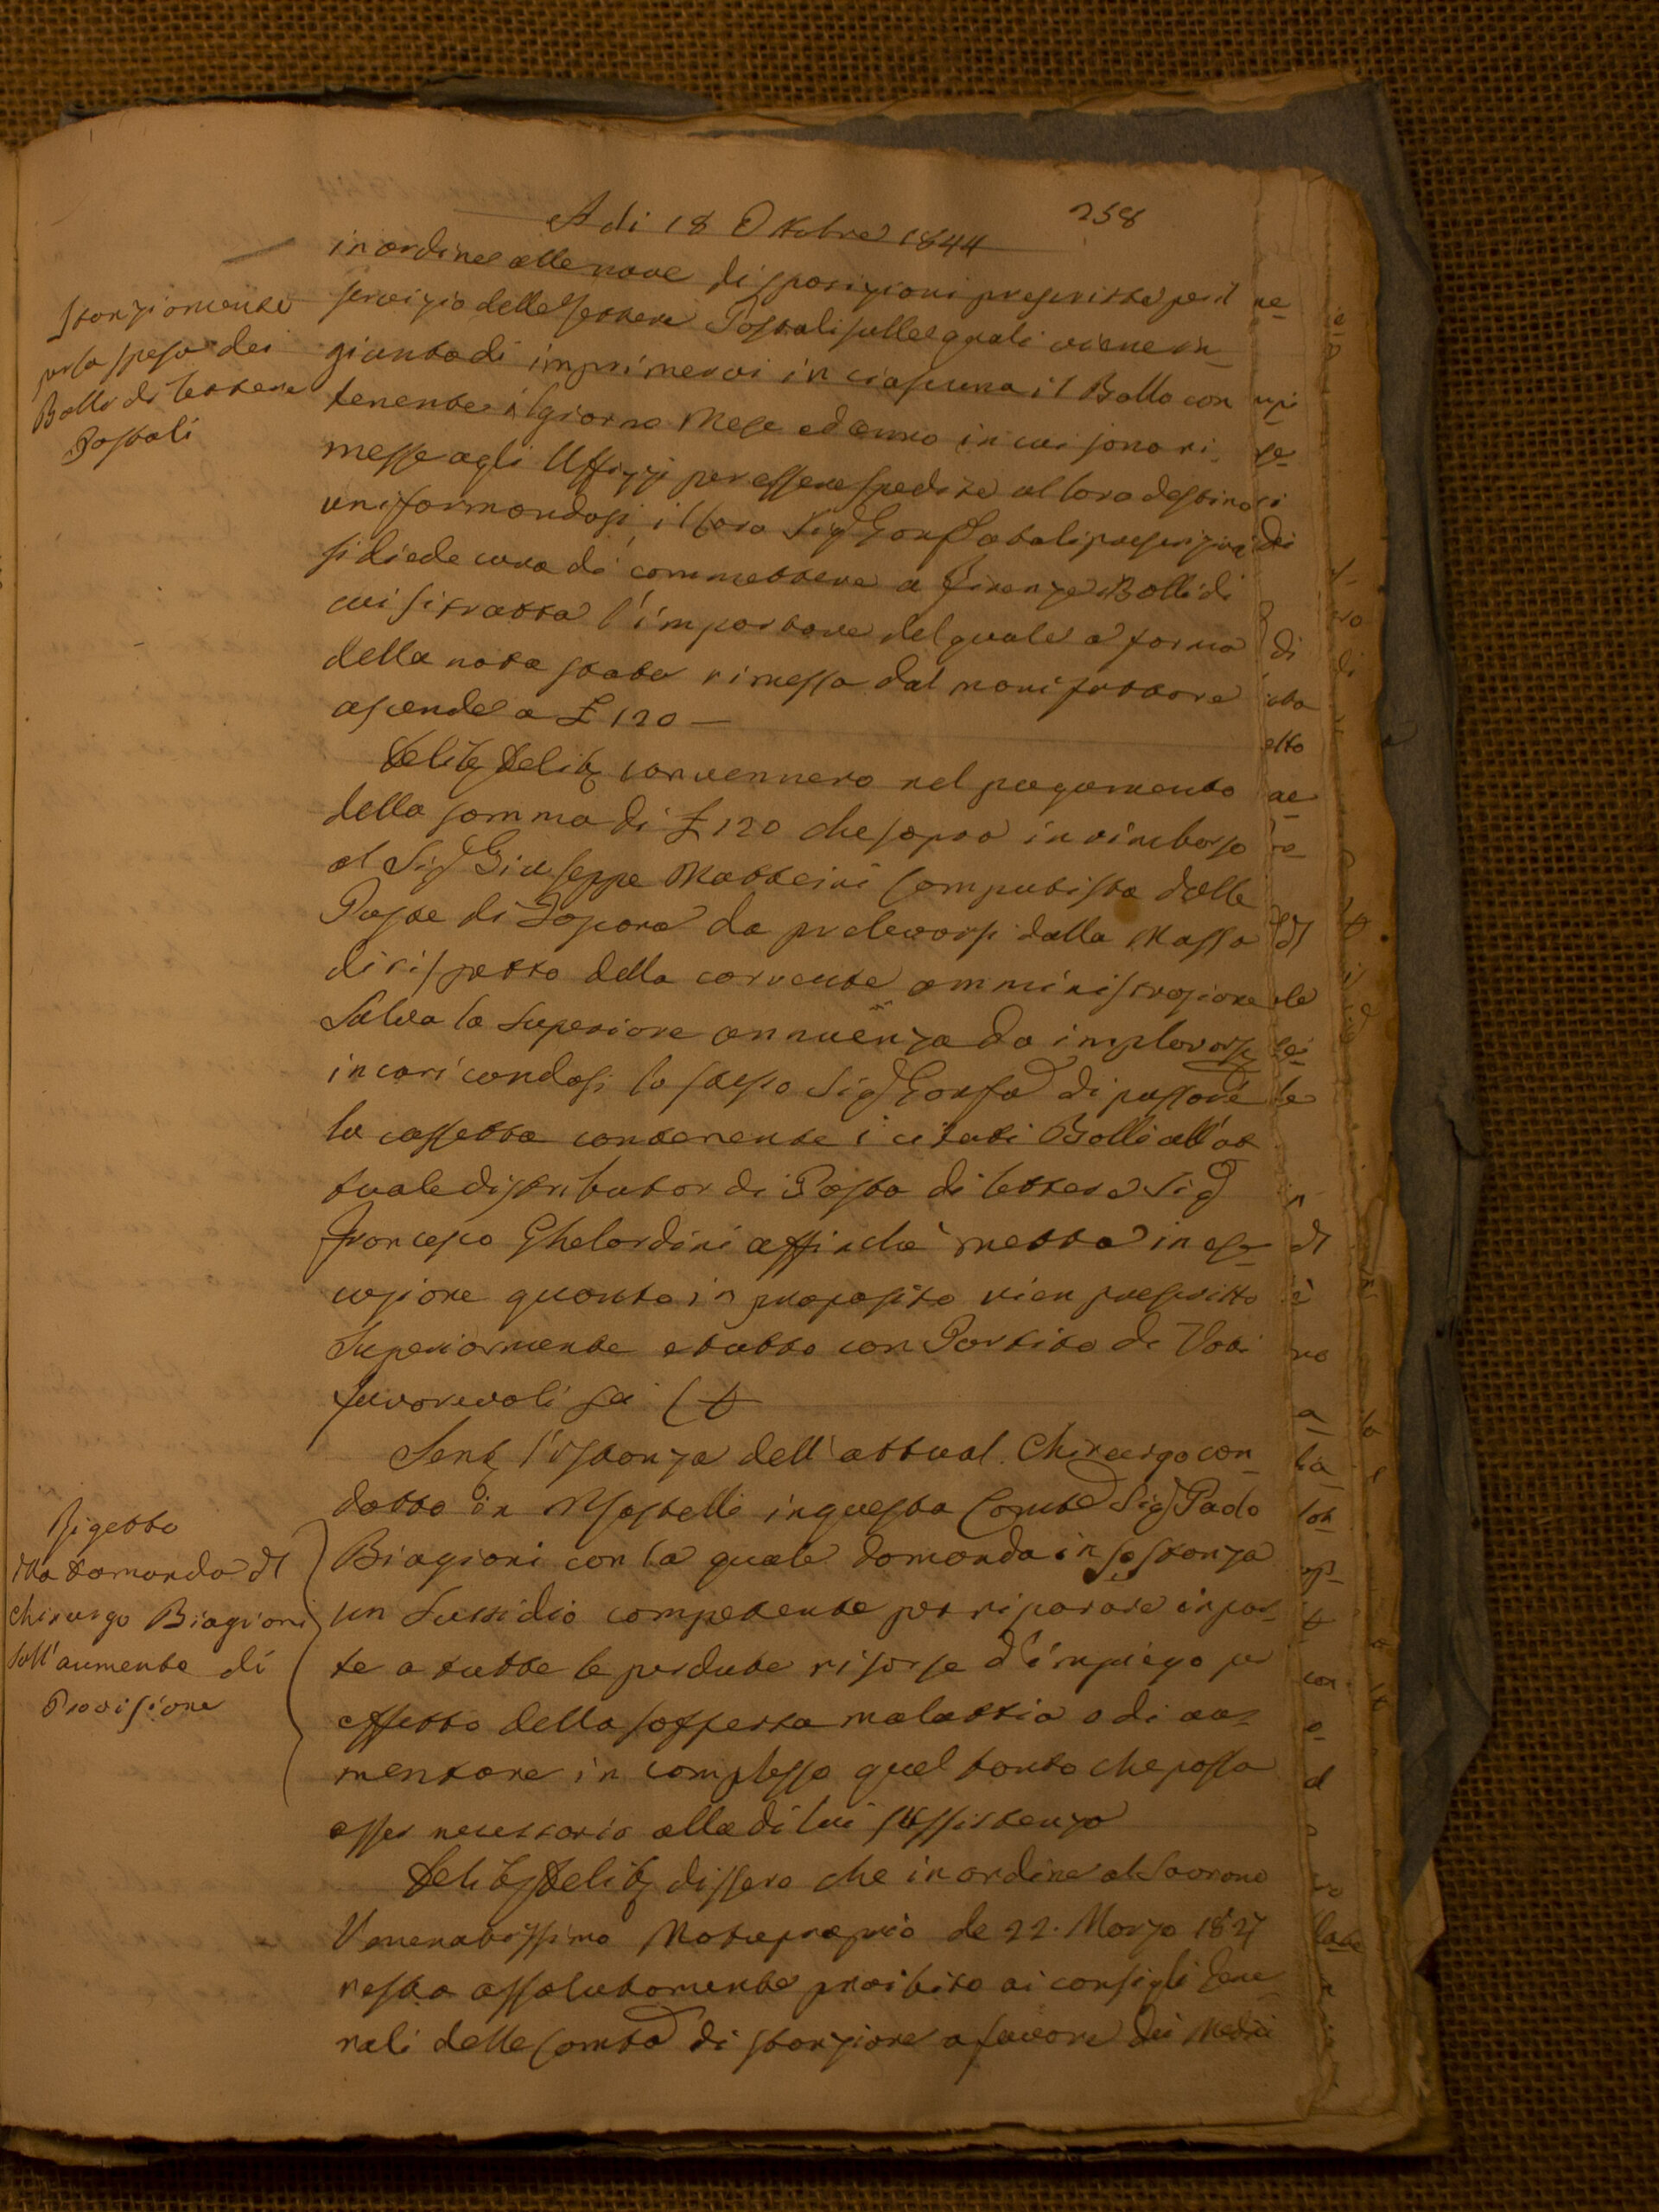 258
Adi 18 Ottobre 1844
in ordine alle nove disposizioni prescritte per il
servizio delle Lettere Postali sulle quali viene in
giunto di imprimervi in ciascuna il Bollo con
tenente il giorno Mese ed anno in cui sono ri-
messe agli Uffizzj per essere spedite al loro destino
uniformandosi il loro Sig Gonf a tali prescrizioni
si diede cura di commettere a Firenze i Bolli di
cui si tratta l'importare del quale a forma
della nota stata rimessa dal manifattore
ascende a £ 120 —
Stanziamento
per la spesa dei
Bolli di lettere
Postali
Delib Delib convennero nel pagamento
della somma di £ 120 che sopra in rimborso
al Sig Giuseppe Matteini Computista delle
Poste di da prelevarsi dalla Massa
di rispetto della corrente amministrazione
Salva la Superiore annuenza da implorarsi
incaricandosi lo stesso Sig Gonf di passare
la cassetta contenente i citati Bolli all'at
tuale distributor di Posta di lettere Sig
Francesco Ghelardini affinché metta in ese-
cuzione quanto in proposito vien prescritto
Superiormente e tutto con Partito di Voti
favorevoli sei
Sent l'istanza dell'attual Chirurgo con-
dotto in in questa Comtà Sig Paolo
Biagioni con la quale domanda in sostanza
un Sussidio competente per riparare in par-
te a tutte le perdute risorse d'impiego per
effetto della sofferta malattia o di au-
mentare in complesso quel tanto che possa
esser necessario alla di lui sussistenza
Rigetto
alla domanda di
Chirurgo Biagioni
sull'aumento di
Provisione
Delib Delib dissero che in ordine al Sovrano
Veneratissimo Motuproprio de 22. Marzo 1827
resta assolutamente proibito ai consigli Gene
rali delle Comtà di stanziare a favore dei Medici